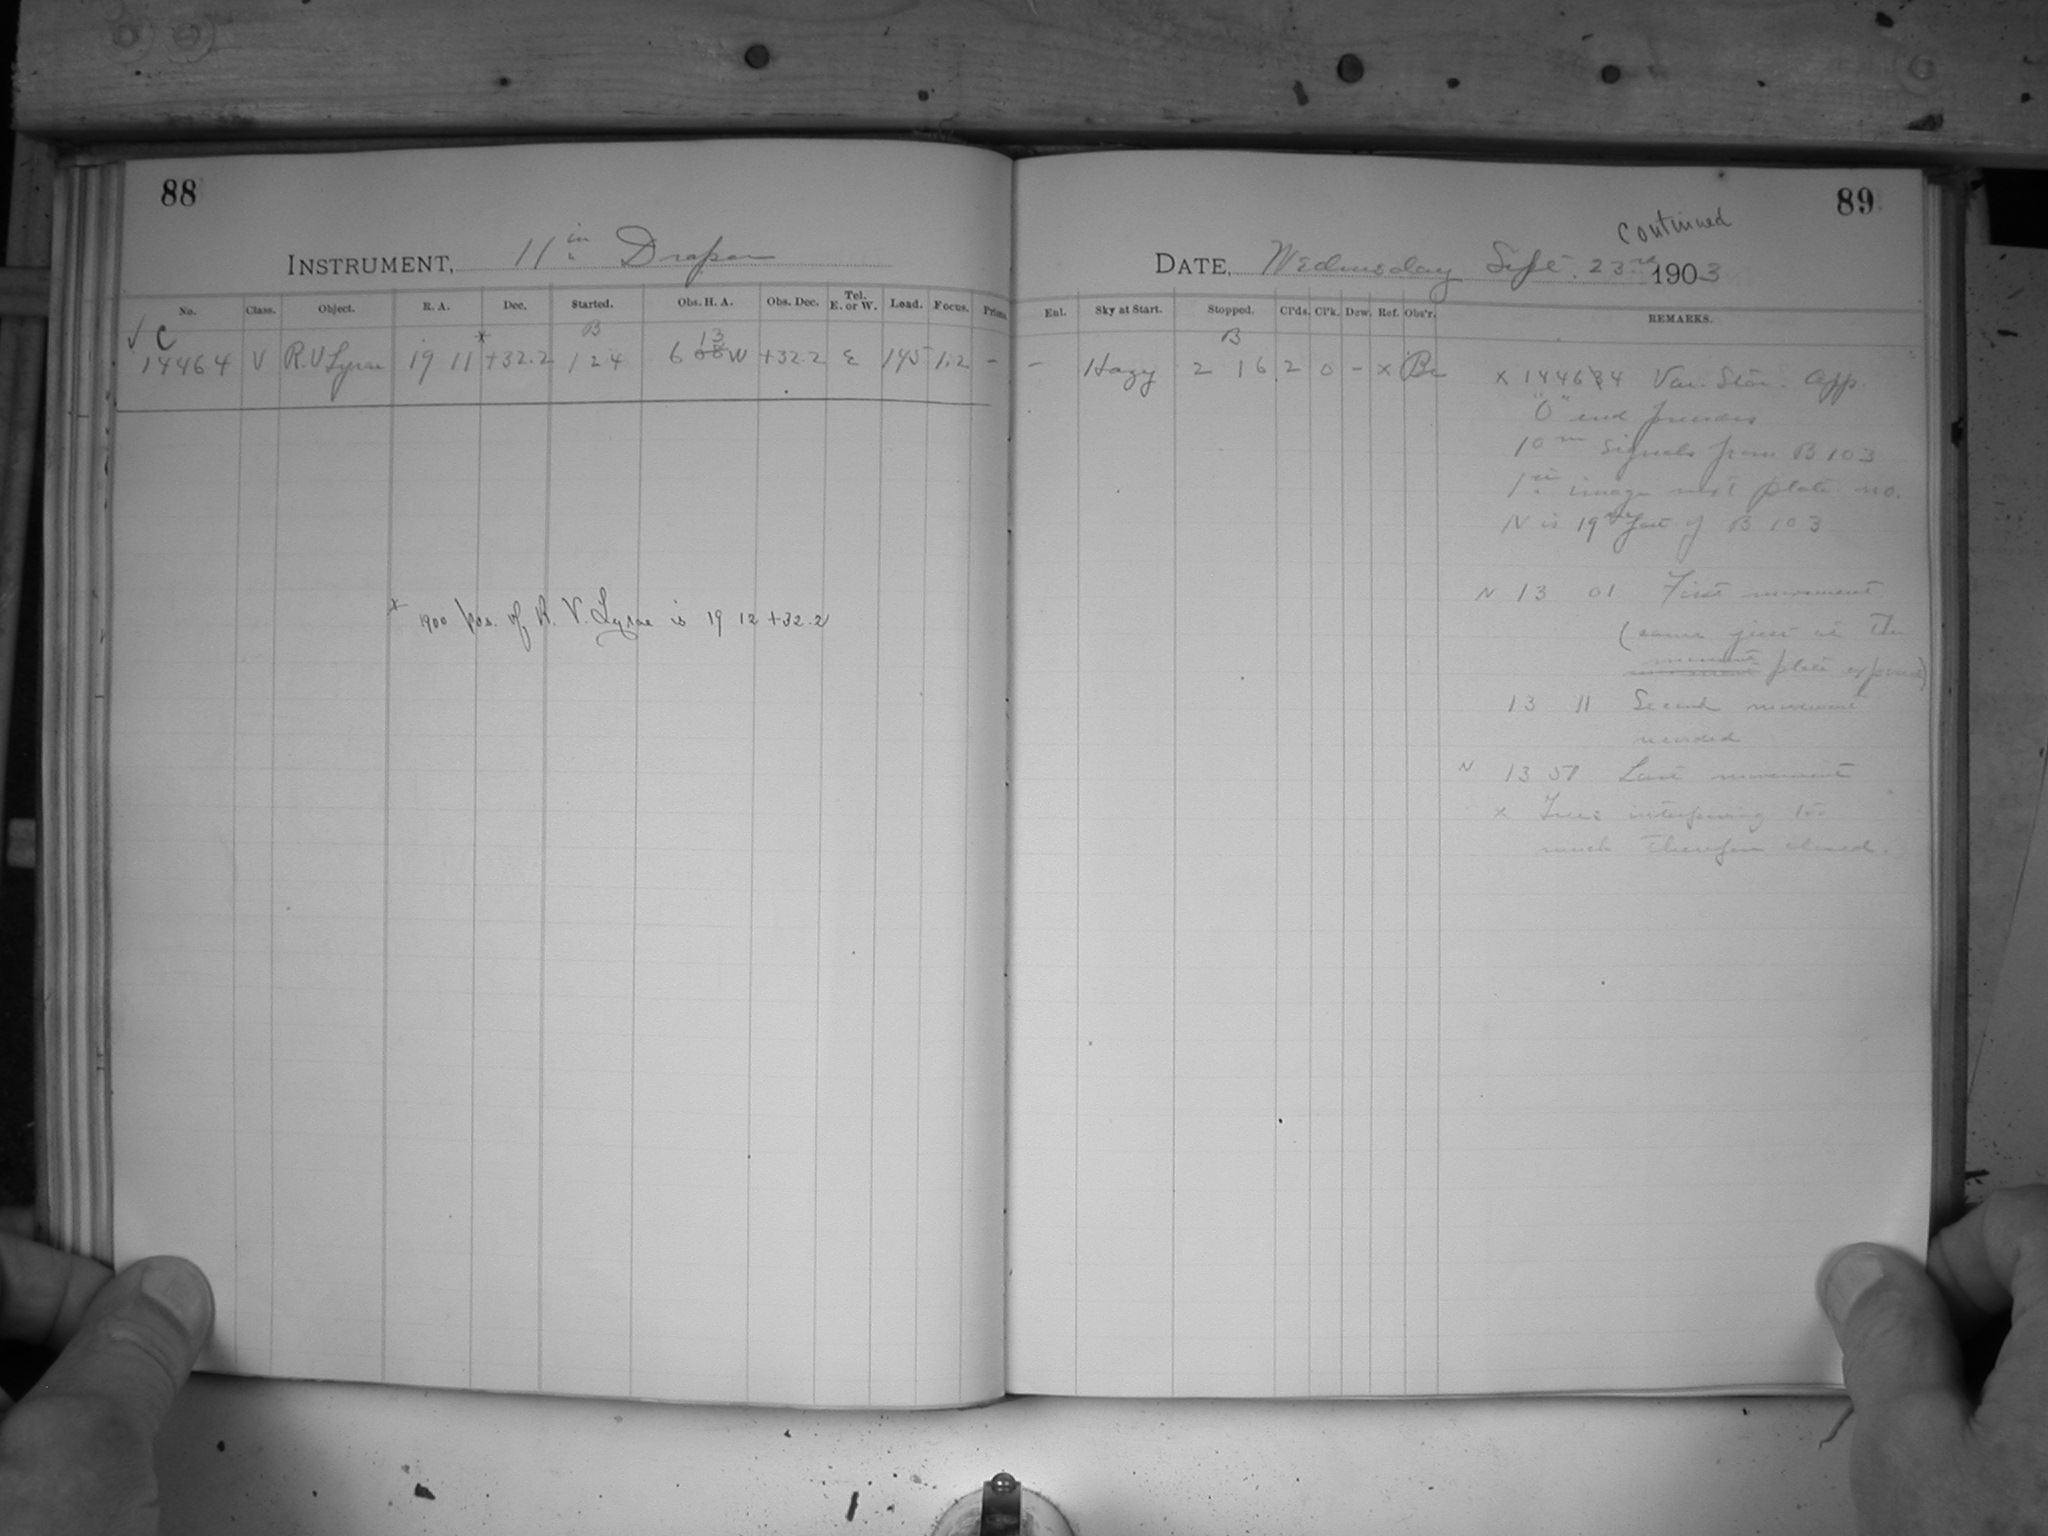 88
INSTRUMENT, 11 in Draper
No. Class. Object. R. A. Dec. Started. Obs. H. A. Obs. Dec. Tel. E. or W. Load. Focus. Prism.
√ C * B 13
14464 V R.V Lyrae 19 11 +32.2 1 24 6 08 W +32.2 E 145 1.2 -
x 1900 pos. of R. V. Lyrae is 19 12 +32.2
89
continued
DATE, Wednesday Sept. 23rd 1903
Enl. Sky at Start. Stopped. Cl'ds. Cl'k. Dew. Ref. Obs'r. REMARKS.
B
- Hazy 2 16 2 0 - x
x 14464 Var. Star. App.
"O" end precedes
10 m signals from B 103
image next plate no.
N is 19 of B 103
N 13 01 First movement
(same give at the
movement plate exposed)
13 11 Second movement
needed
N 13 51 Last movement
x Trees interfering too
much therefore closed.